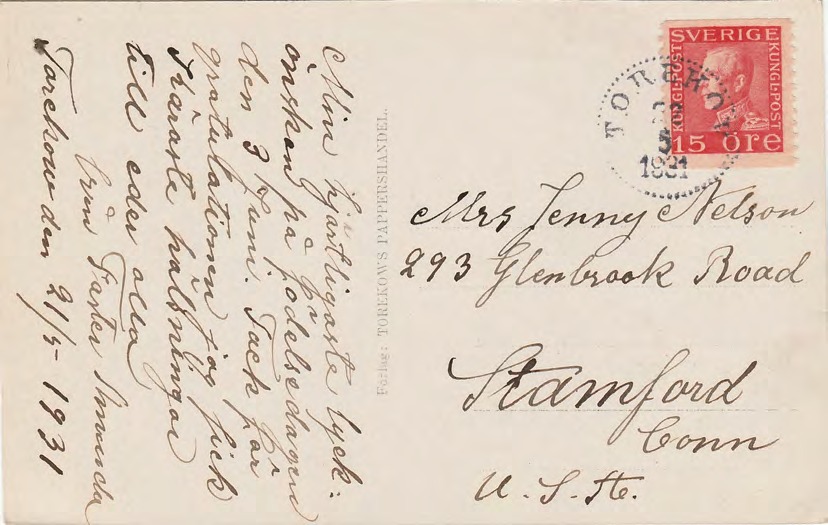 Min hjärtligaste lyck:
önskan på födelsedagen
den 3 Juni. Tack för
gratulationen jag fick
Käraste hälsningar
till eder alla
från Faster
Torekow den 21/5 1931
Förlag: TOREKOWS PAPPERSHANDEL.
SVERIGE
KUNGL·POST
KUNGL·POST
15 öre
TOREKOV
5
1931
Mrs Jenny Nelson
293 Glenbrook Road
Stamford
Conn
U. S. Ae.